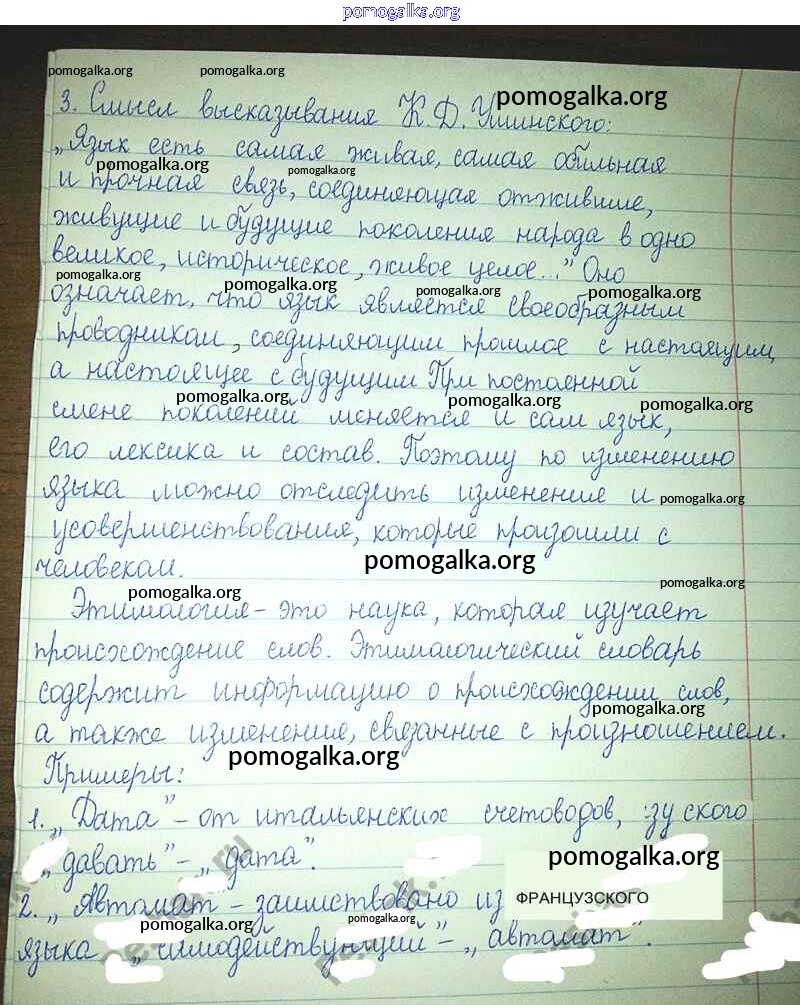 pomogalka.org
pomogalka.org pomogalka.org
3. Смысл высказывания К.Д. Ушинского: pomogalka.org
„Язык есть самая живая, самая обильная
pomogalka.org pomogalka.org
и прочная связь, соединяющая отжившие,
живущие и будущие поколения народа в одно
великое, историческое, живое целое..." Оно
pomogalka.org pomogalka.org pomogalka.org pomogalka.org
означает, что язык является своеобразным
проводником, соединяющим прошлое с настоящим,
а настоящее с будущим При постоянной
pomogalka.org pomogalka.org pomogalka.org
смене поколений меняется и сам язык,
его лексика и состав. Поэтому по изменению
языка можно отследить изменение и pomogalka.org
усовершенствования, которые произошли с
человеком. pomogalka.org
pomogalka.org pomogalka.org
Этимология – это наука, которая изучает
происхождение слов. Этимологический словарь
содержит информацию о происхождении слов,
pomogalka.org
а также изменения, связанные с произношением.
pomogalka.org
Примеры:
1. „Дата" – от итальянских счетоводов, ского
„давать" – „дата".
pomogalka.org
2. „Автомат – заимствовано из ФРАНЦУЗСКОГО
pomogalka.org pomogalka.org
языка „ – „автомат".